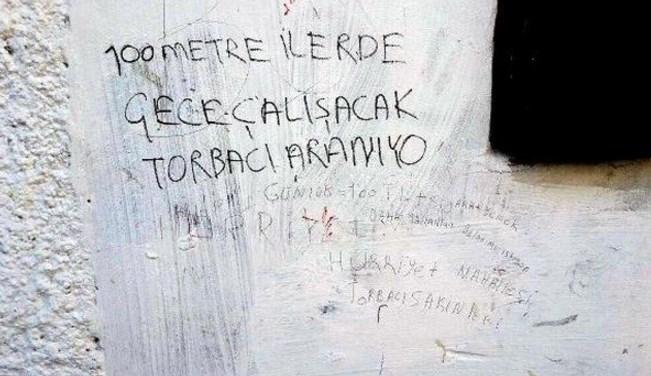 100 METRE İLERDE
GECE ÇALIŞACAK
TORBACI ARANIYO
GÜNLÜK = 100 TL
HÜRRİYET
HÜRRİYET MAHALLESİ
TORBACI SAKİNLERİ